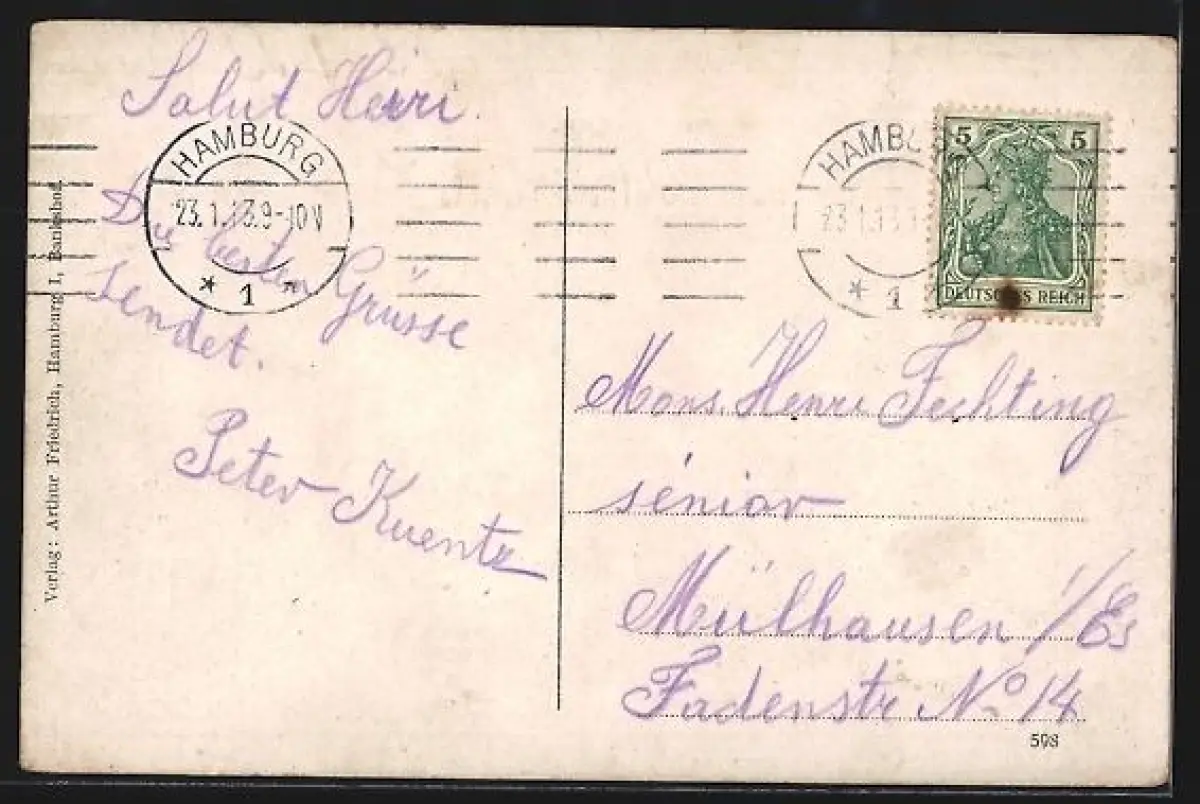 Salut Henri.
HAMBURG
23.1.13.9-10V
* 1 *
Die besten Grüsse
sendet.
Peter Kuentz
Verlag: Arthur Friedrich, Hamburg I, Bankshof
HAMBURG
23.1.13.
* 1
5 5
DEUTSCHES REICH
Mons. Henri Fechting
sénior
Mülhausen i/Els
Fadenstr No 14
598